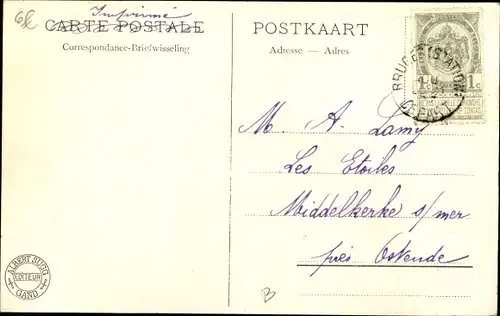 Imprimé
CARTE POSTALE
Correspondance-Briefwisseling
POSTKAART
Adresse — Adres
BRUGGE (STATION)
1c 1c
M. A. Lamy
Les Etoiles
Middelkerke s/mer
près Ostende
ALBERT SUGG
EDITEUR
GAND
B